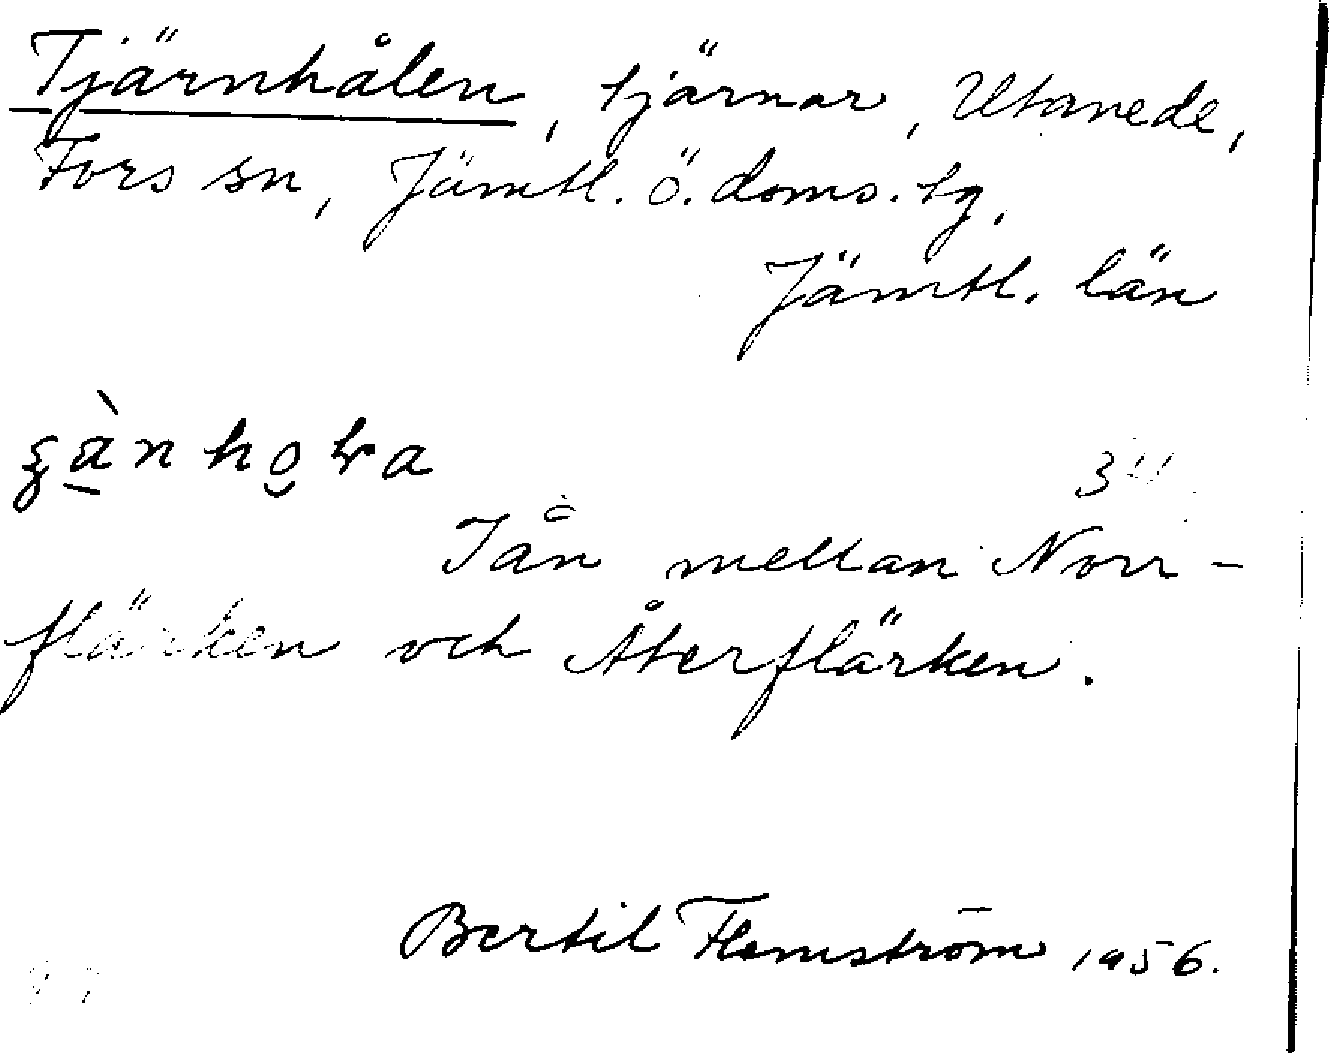 Tjärnhålen, tjärnar, Utanede,
Fors sn, Jämtl. ö. doms. tg,
Jämtl. län
Iån mellan Norr-
flärken och Återflärken.
Bertil Flemström 1956.